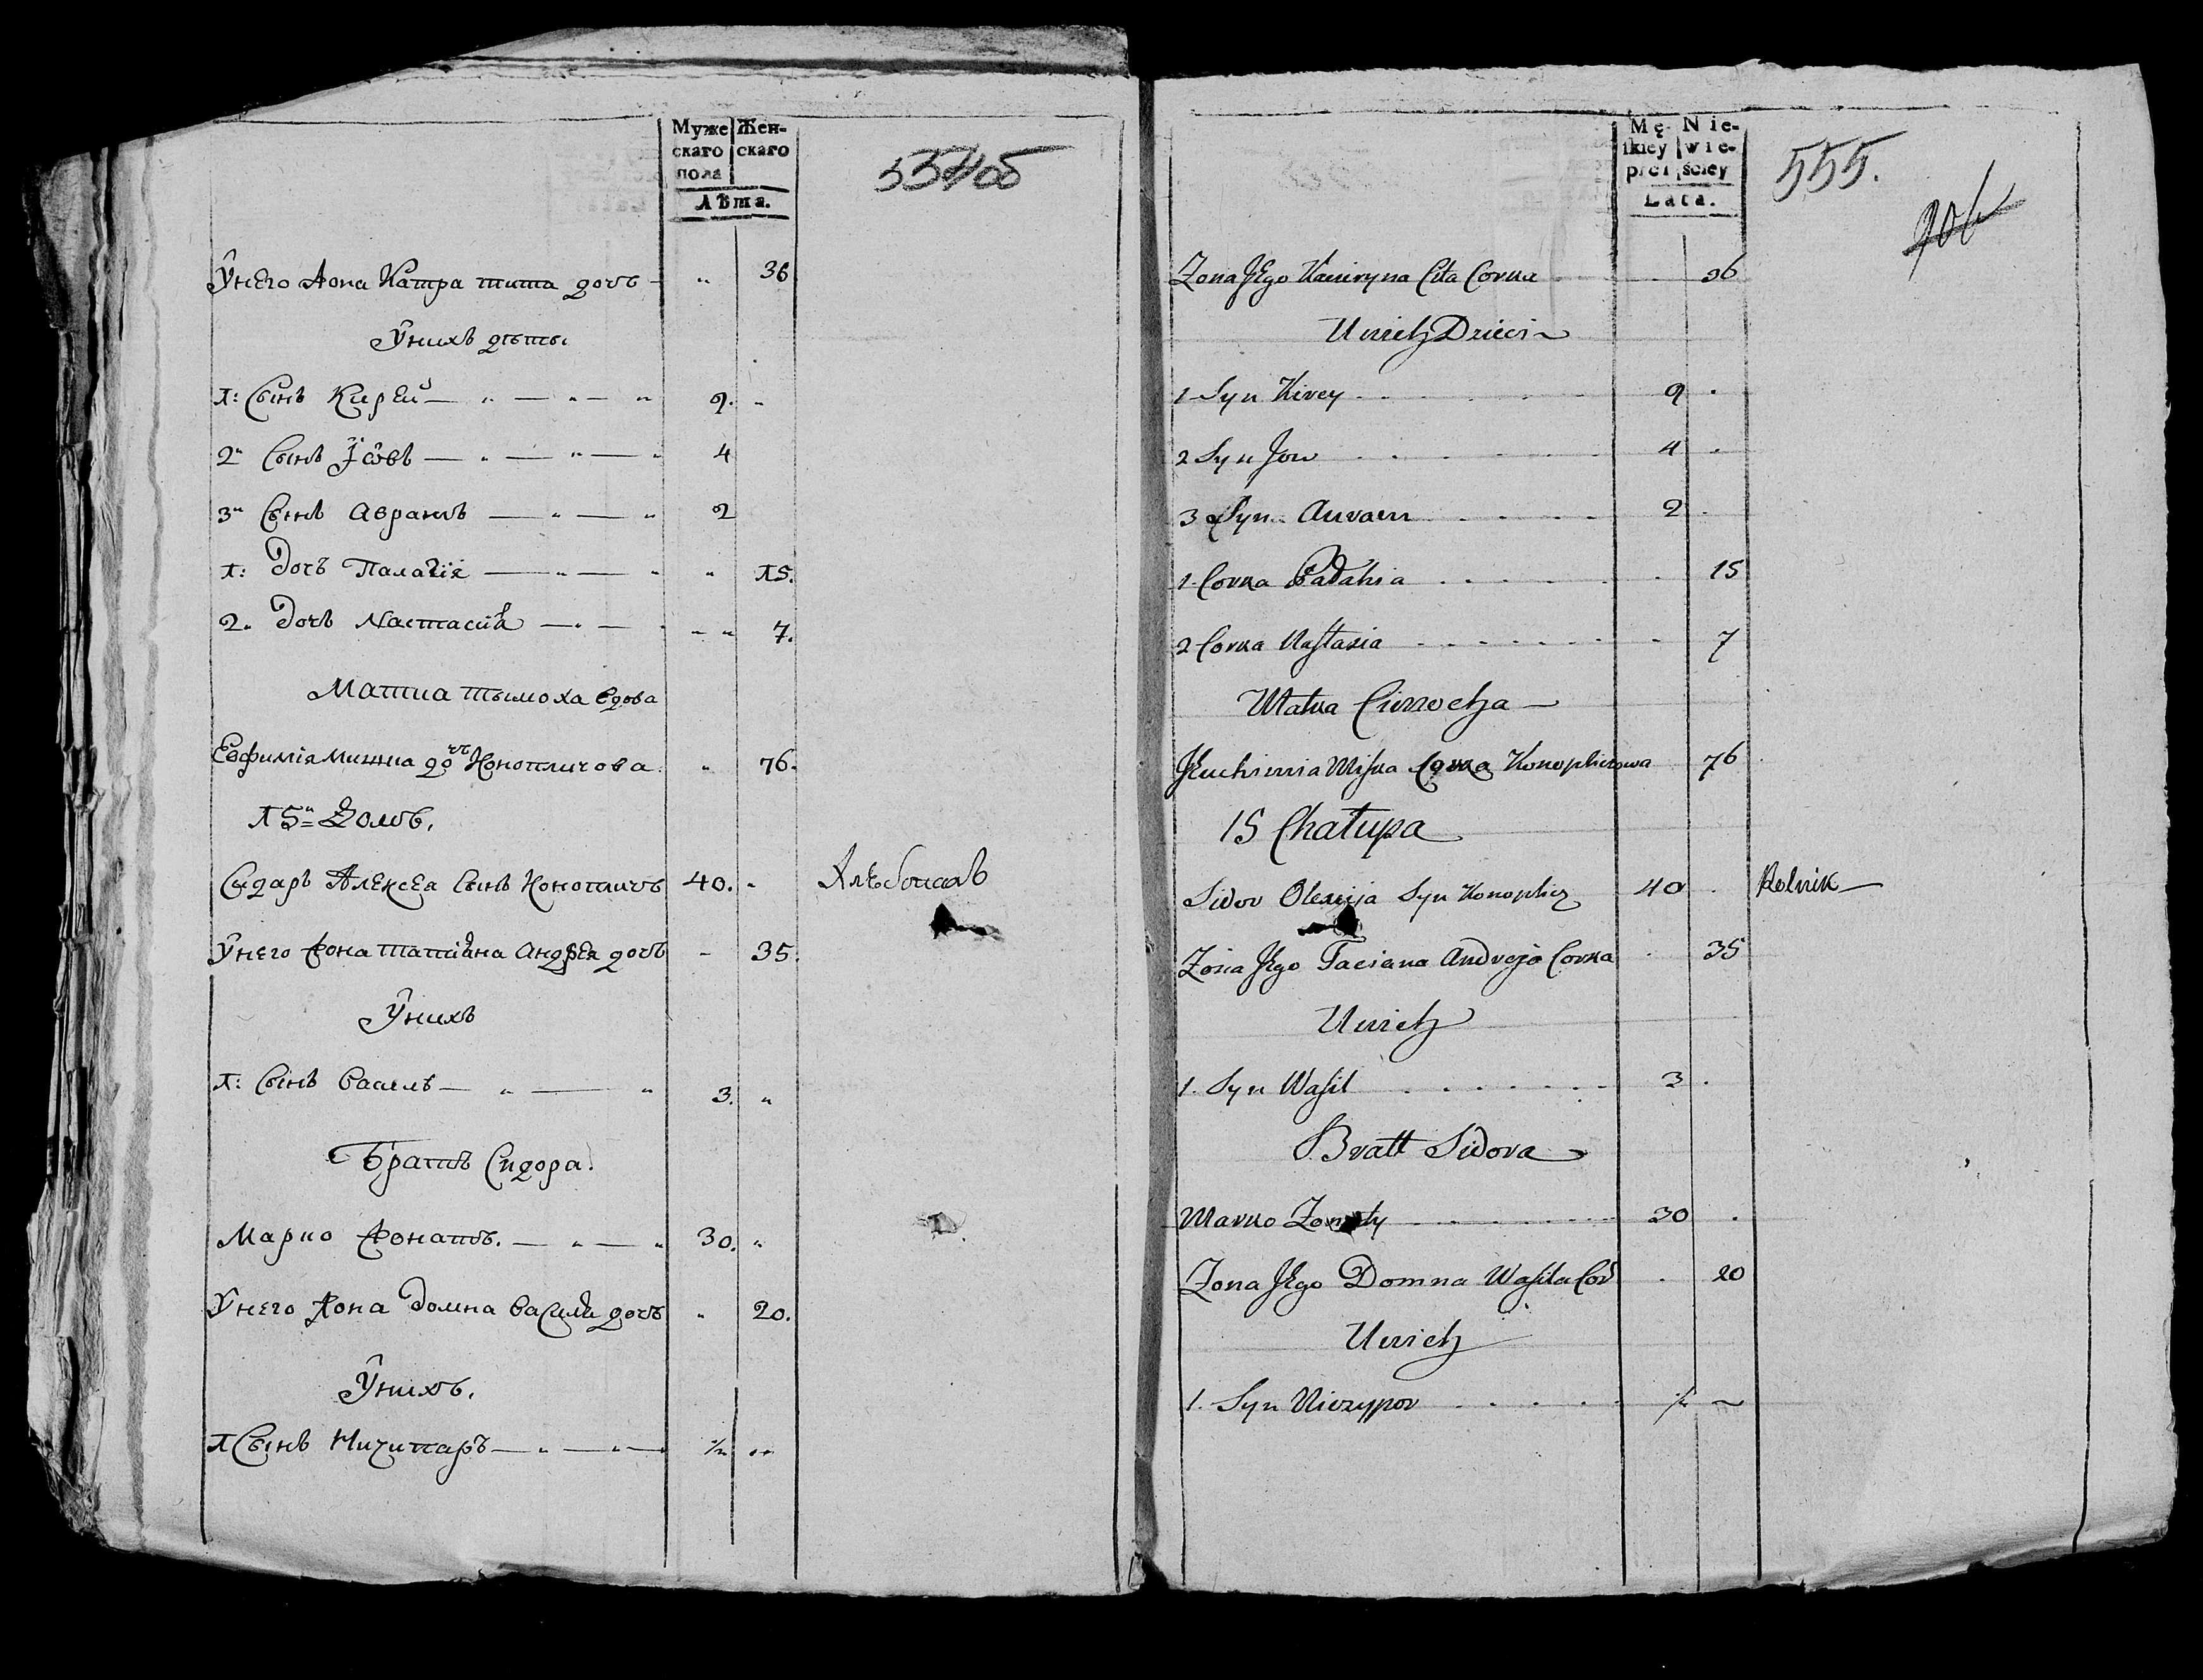 Муже Жен-
скаго скаго
пола
Лѣта.
554об
Унего Жона Катра тита дочь 36
Унихъ дѣты
1: Сынъ Кирей 9.
2 Сынъ Іовъ 4
3 Сынъ Аврамъ 2
1: Дочъ Палагія 15.
2. Дочъ Настасія 7.
Матка тымоха вдова
Евфимія Мишка дочь Конопличова 76.
15 Домъ.
Сидаръ Алексея Сынъ Конопличъ 40. Хлѣбопашъ
Унего Жона татіяна Андрея дочъ 35.
Унихъ
1: Сынъ Василь 3.
Братъ Сидора.
Марко Жонатъ. 30.
Унего Жона Домна Василя дочъ 20.
Унихъ.
1 Сынъ Ничипаръ ½
Mę- Nie-
skiey wie-
płci ściey
Lata.
555.
Zona Jego Katryna Cita Corka 36
U nich Dzieci
1 Syn Kirey 9
2 Syn Jow 4
3 Syn Auram 2
1 Corka Pałahia 15
2 Corka Nastazia 7
Matka Cimocha
Jeuchimia Miska Corka Konopliczowa 76
15 Chałupa
Sidor Olexieja Syn Konoplicz 40 Rolnik
Zona Jego Taciana Andreja Corka 35
U nich
1. Syn Wasil 3
Bratt Sidora
Marko Zonaty 30
Zona Jego Domna Wasila Cor 20
U nich
1. Syn Niczypor ½